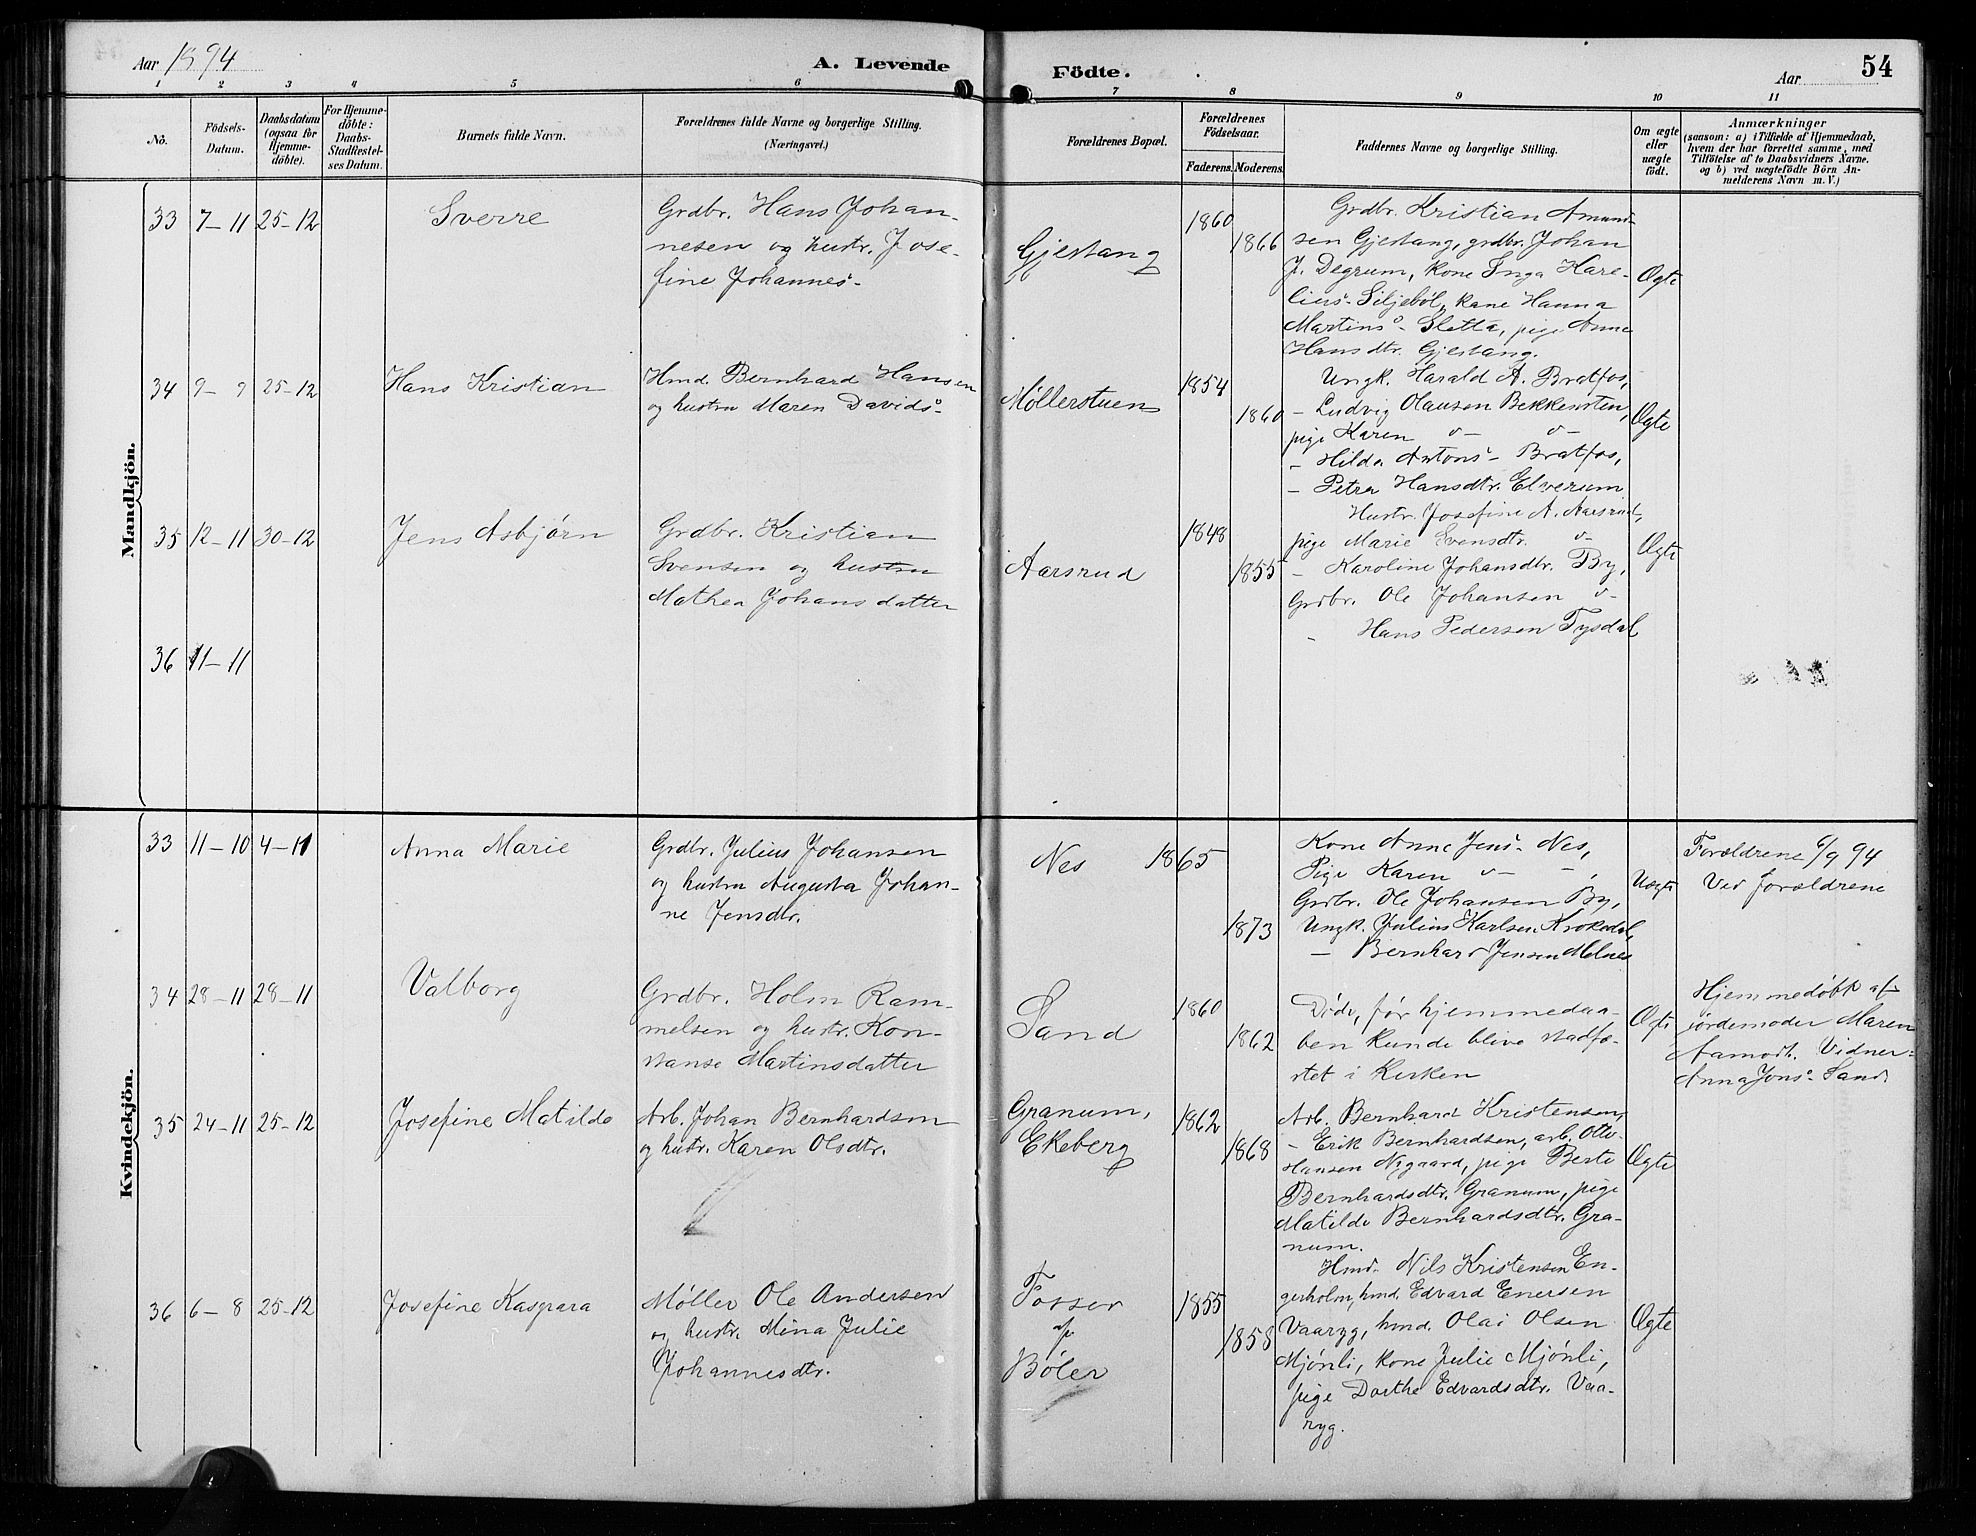 Aar 1894
A. Levende
Födte.
Aar
54
1 2 3 4 5 6 7 8 9 10 11
No.
Födsels-
Datum.
Daabsdatum
(ogsaa for
Hjemme-
döbte).
For Hjemme-
döbte:
Daabs-
Stadfæstel-
ses Datum.
Barnets fulde Navn.
Forældrenes fulde Navne og borgerlige Stilling.
(Næringsvei.)
Forældrenes Bopæl.
Forældrenes
Födselsaar.
Faderens. Moderens.
Faddernes Navne og borgerlige Stilling.
Om ægte
eller
uægte
født.
Anmærkninger
(saasom: a) i Tilfælde af Hjemmedaab,
hvem der har forrettet samme, med
Tilföielse af to Daabsvidners Navne,
og b) ved uægtefödte Börn An-
melderens Navn m. V.)
Mandkjön.
33 7-11 25-12
Sverre
Grdbr. Hans Johan-
nesen og hustr. Jose-
fine Johannes-
Gjestang
1860
1866
Grdbr. Kristian Amund-
sen Gjestang, grdbr. Johan
J. Degrum, kone Inga Hare-
lius- Siljeból, kone Hanna
Martins- Sletta, pige Anne
Hansdtr. Gjestang.
Ægte
34 9-9 25-12
Hans Kristian
Hmd. Bernhard Hansen
og hustru Maren Davids-
Møllerstuen
1854
1860
Ungk. Harald A. Bratfos,
- Ludvig Olausen Bekkensten,
pige Karen v- v-
- Hilda Antons- Bratfos,
- Petra Hansdtr. Elverum
Ægte
35 12-11 30-12
Jens Asbjørn
Grdbr. Kristian
Svensen og hustru
Mathea Johansdatter
Aarsrud
1848
1855
Hustr. Josefine A. Aarsrud,
pige Marie Svensdtr. v-
- Karoline Johansdtr. By,
Grdbr. Ole Johansen v-
- Hans Pedersen Tysdal
Ægte
36 11-11
Kvindekjön.
33 11-10 4-11
Anna Marie
Grdbr. Julius Johansen
og hustru Augusta Johan-
ne Jensdtr.
Nes
1865
1873
Kone Anne Jens- Nes,
Pige Karen v- -,
Grdbr. Ole Johansen By,
Ungk. Julius Karlsen Krokedal,
- Bernhard Jensen Melnes
Uægte
Forældrene 6/9 94
Ved forældrene
34 28-11 28-11
Valborg
Grdbr. Holm Ram-
melsen og hustr. Kon-
stanse Martinsdatter
Sand
1860
1862
Døde, før hjemmedaa-
ben kunde blive stadfæ-
stet i Kirken
Ægte
Hjemmedøbt af
jordemoder Maren
Aamodt. Vidner:
Anna Jons- Sand.
35 24-11 25-12
Josefine Matilde
Arb. Johan Bernhardsen
og hustr. Karen Olsdtr.
Granum,
Ekeberg
1862
1868
Arb. Bernhard Kristensen,
- Erik Bernhardsen, arb. Otto
Hansen Nygaard, pige Berte
Bernhardsdtr. Granum, pige
Matilde Bernhardsdtr. Gra-
num.
Ægte
36 6-8 25-12
Josefine Kaspara
Møller Ole Andersen
og hustr. Mina Julie
Johannesdtr.
Fosser
af
Bøler
1855
1858
Hmd. Nils Kristensen En-
gerholm, hmd. Edvard Enersen
Vaaryg, hmd. Olai Olsen
Mjønli, kone Julie Mjønli,
pige Dorthe Edvardsdtr. Vaa-
ryg.
Ægte